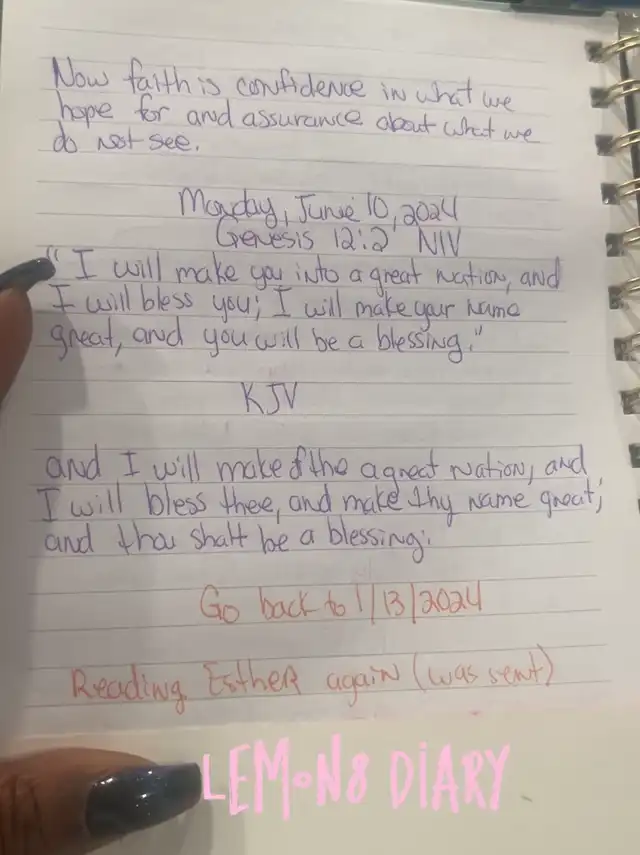 Now faith is confidence in what we
hope for and assurance about what we
do not see.
Monday, June 10, 2024
Genesis 12:2 NIV
"I will make you into a great nation, and
I will bless you; I will make your name
great, and you will be a blessing."
KJV
and I will make of the a great nation, and
I will bless thee, and make thy name great;
and thou shalt be a blessing:
Go back to 1/13/2024
Reading Esther again (was sent)
LEMON8 DIARY